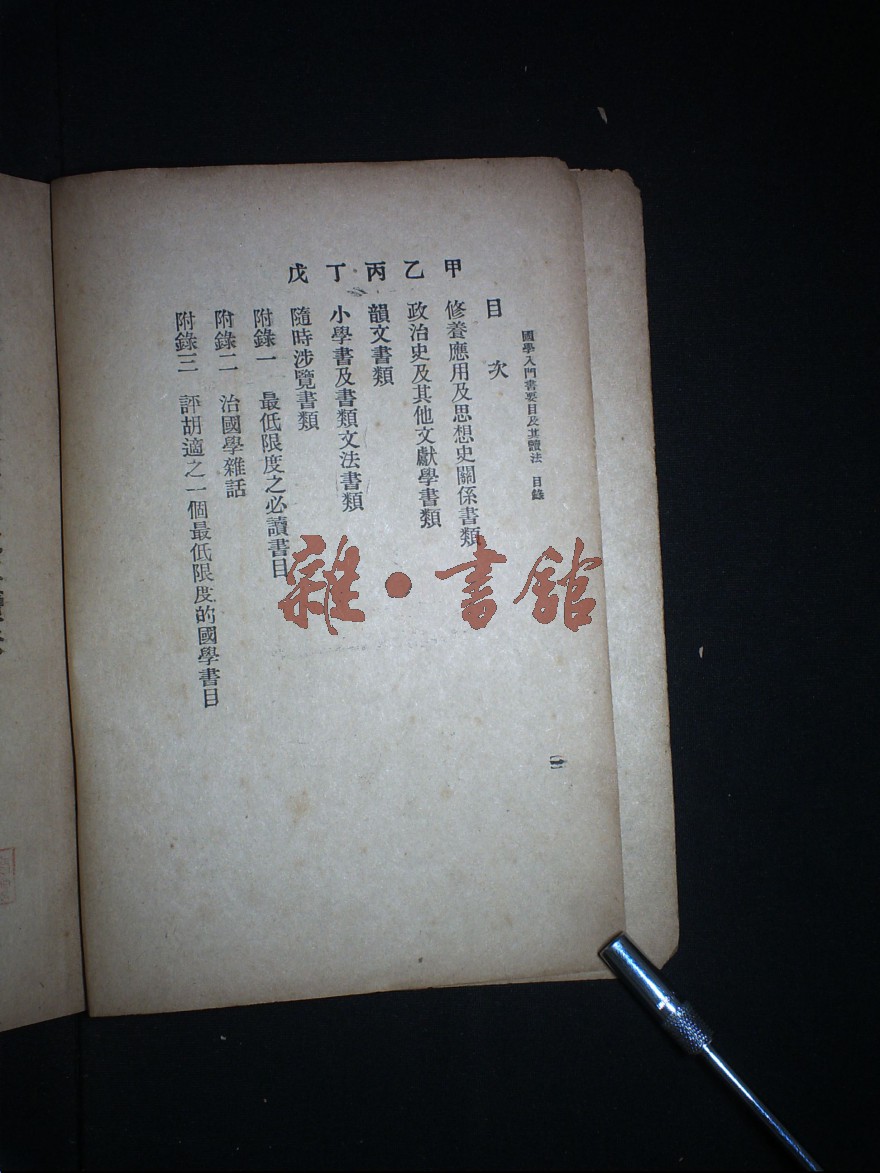 國學入門書要目及其讀法 目錄
目次
甲 修養應用及思想史關係書類
乙 政治史及其他文獻學書類
丙 韻文書類
丁 小學書及書類文法書類
戊 隨時涉覽書類
附錄一 最低限度之必讀書目
附錄二 治國學雜話
附錄三 評胡適之一個最低限度的國學書目
雜·書館